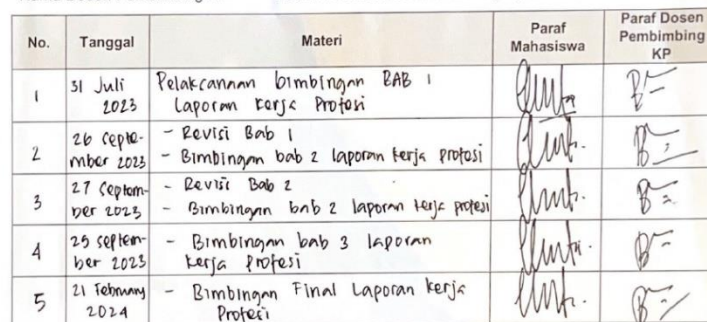 No. Tanggal Materi Paraf Mahasiswa Paraf Dosen Pembimbing KP
1 31 Juli 2023 Pelaksanaan bimbingan BAB 1
Laporan Kerja Profesi
2 26 September 2023 - Revisi Bab 1
- Bimbingan bab 2 laporan kerja profesi
3 27 September 2023 - Revisi Bab 2
- Bimbingan bab 2 laporan kerja profesi
4 25 September 2023 - Bimbingan bab 3 laporan
kerja profesi
5 21 February 2024 - Bimbingan Final Laporan kerja
Profesi